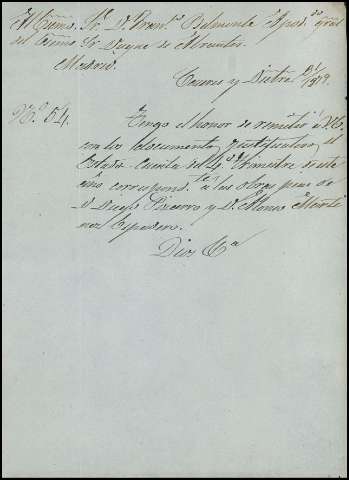 Al Excmo. Sr. Dn. Franco. Belmonte Apodo. gral
del Excmo Sr Duque de Abrantes.
Madrid.
Caceres y Dicbre 31/1879.
No. 54.
Tengo el honor de remitir á V.E.
con los documentos justificativos, el
Estado-Cuenta del 4o. trimestre de este
año correspondte. á las obras pias de
D. Diego Pizarro y D. Alonso Marti
nez Espadero.
Dios Ga